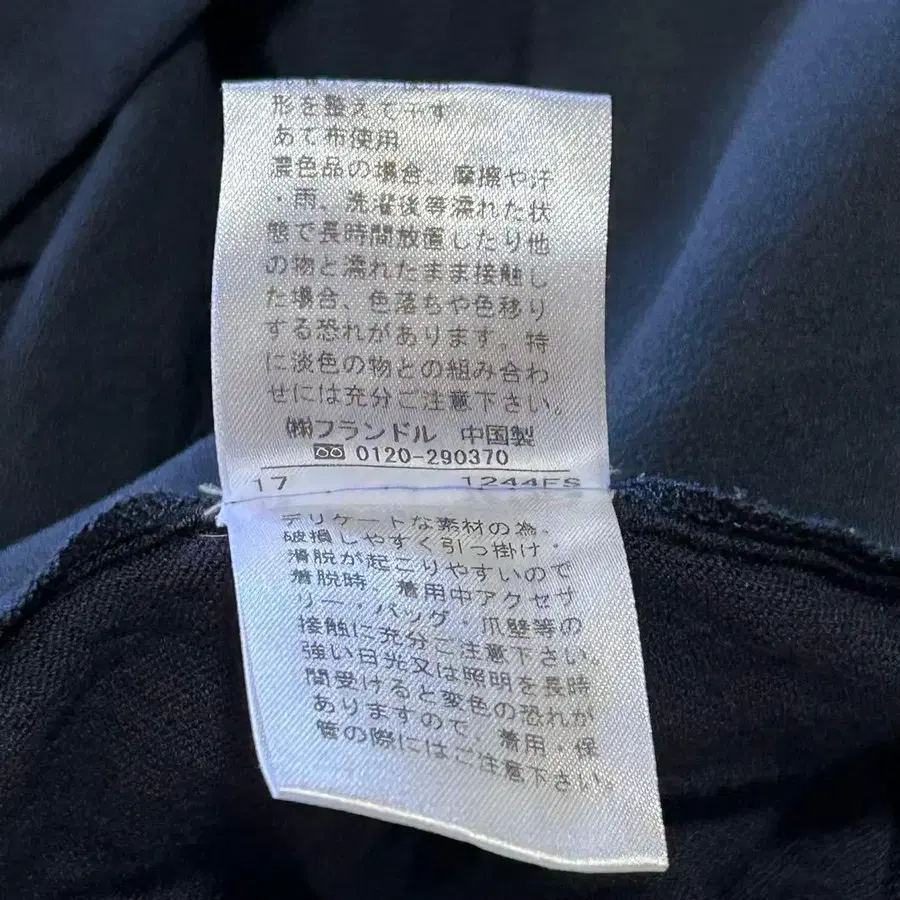 形を整えて干す
あて布使用
濃色品の場合、摩擦や汗
・雨、洗濯後等濡れた状
態で長時間放置したり他
の物と濡れたまま接触し
た場合、色落ちや色移り
する恐れがあります。特
に淡色の物との組み合わ
せには充分ご注意下さい。
㈱フランドル 中国製
0120-290370
17 1244FS
デリケートな素材の為、
破損しやすく引っ掛け・
滑脱が起こりやすいので
着脱時、着用中アクセサ
リー・バッグ・爪壁等の
接触に充分ご注意下さい。
強い日光又は照明を長時
間受けると変色の恐れが
ありますので、着用・保
管の際にはご注意下さい。